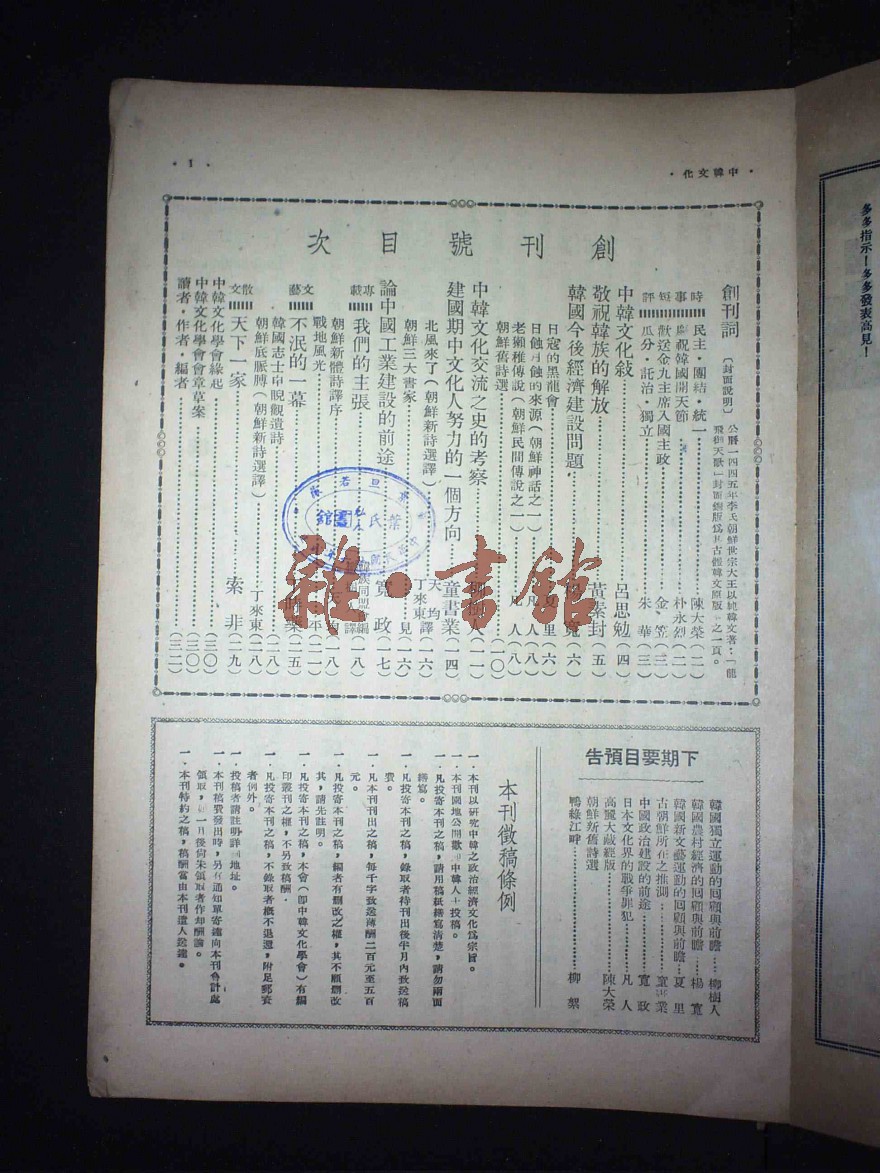 ・中韓文化・
・1・
創刊號目次
創刊詞
〔封面說明〕公曆一四四五年李氏朝鮮世宗大王以純韓文著：「龍
飛御天歌」封面鋅版為其古版韓文原版之一頁。
時事短評
民主・團結・統一 陳大榮（二）
慶祝韓國開天節 朴永烈（二）
歡送金九主席入國主政 金笠（三）
瓜分・託治・獨立 朱華（三）
中韓文化敍 呂思勉（四）
敬祝韓族的解放 黃素封（五）
韓國今後經濟建設問題 寬（六）
日寇的黑龍會 夏里（六）
日蝕月蝕的來源（朝鮮神話之一） 凡人（八）
老獺稚傳說（朝鮮民間傳說之一） 凡人（八）
朝鮮舊詩選 （一〇）
中韓文化交流之史的考察 柳樹人（一一）
建國期中文化人努力的一個方向 童書業（一四）
北風來了（朝鮮新詩選譯） 天均譯（一六）
朝鮮三大書家 丁來東 見（一六）
論中國工業建設的前途 寬政（一七）
專載
我們的主張 （一八）
文藝
朝鮮新體詩譯序 （一八）
戰地風光 （二一）
不泯的一幕 （二五）
韓國志士申睨觀遺詩
朝鮮底脈膊（朝鮮新詩選譯） 丁來東（二八）
散文
天下一家 索非（二九）
中韓文化學會緣起 （三〇）
中韓文化學會會章草案 （三〇）
讀者・作者・編者 （三二）
下期要目預告
韓國獨立運動的囘顧與前瞻 柳樹人
韓國農村經濟的囘顧與前瞻 楊寬
韓國新文藝運動的囘顧與前瞻 夏里
古朝鮮所在之推測 童書業
中國政治建設的前途 寬政
日本文化界的戰爭罪犯 凡人
高麗大藏經版 陳大榮
朝鮮新舊詩選
鴨綠江畔 柳絮
本刊徵稿條例
一、本刊以研究中韓之政治經濟文化爲宗旨。
一、本刊園地公開歡迎中韓人士投稿。
一、凡投寄本刊之稿，請用稿紙繕寫清楚，請勿兩面
繕寫。
一、凡投寄本刊之稿，錄取者待刊出後半月內致送稿
費。
一、凡本刊刊出之稿，每千字致送薄酬二百元至五百
元。
一、凡投寄本刊之稿，編者有刪改之權，其不願刪改
其，請先註明。
一、凡投寄本刊之稿，本會（即中韓文化學會）有編
印叢刊之權，不另致稿酬。
一、凡投寄本刊之稿，不錄取者概不退還，附足郵資
者例外。
一、投稿者請註明詳細地址。
一、本刊稿費發出時，另有通知單寄達向本刊會計處
領取，如一月後尚未領取者作却酬論。
一、本刊特約之稿，稿酬當由本刊遣人送達。
多多指示！多多發表高見！
雜・書館